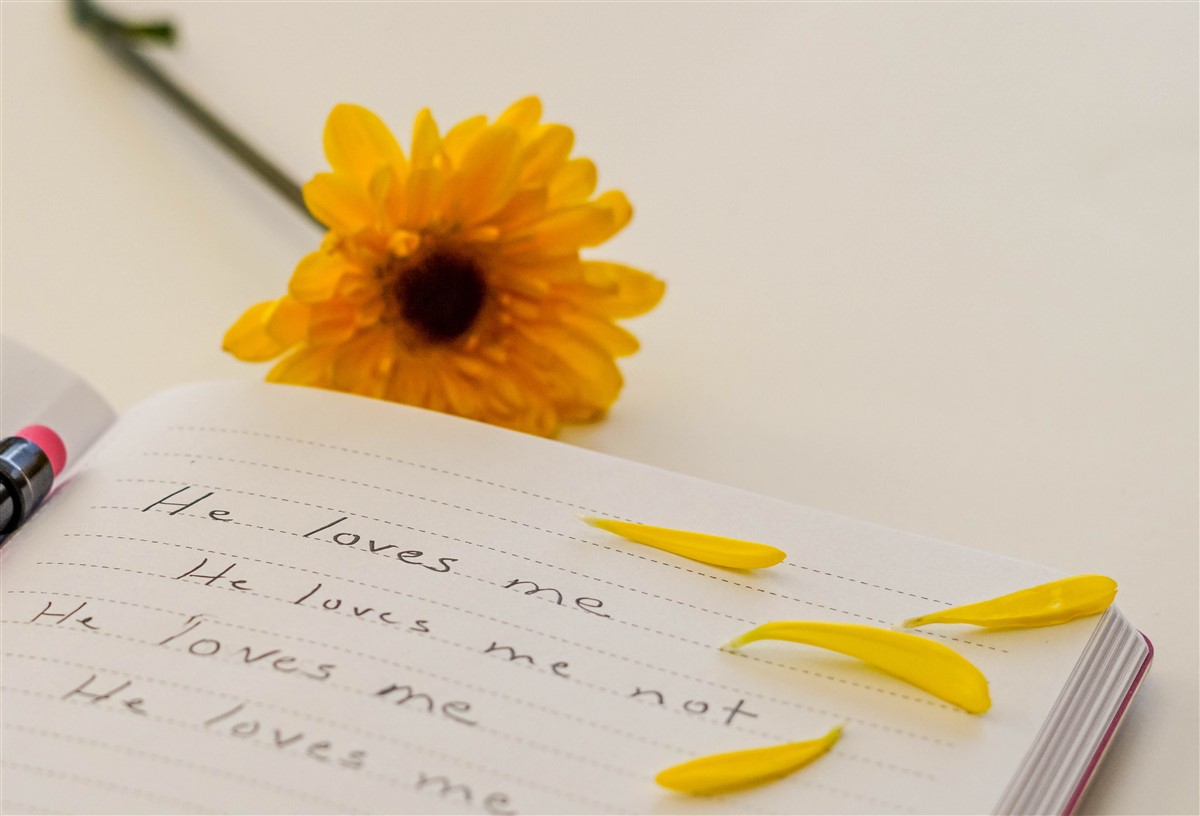 He loves me
He loves me not
He loves me
He loves me